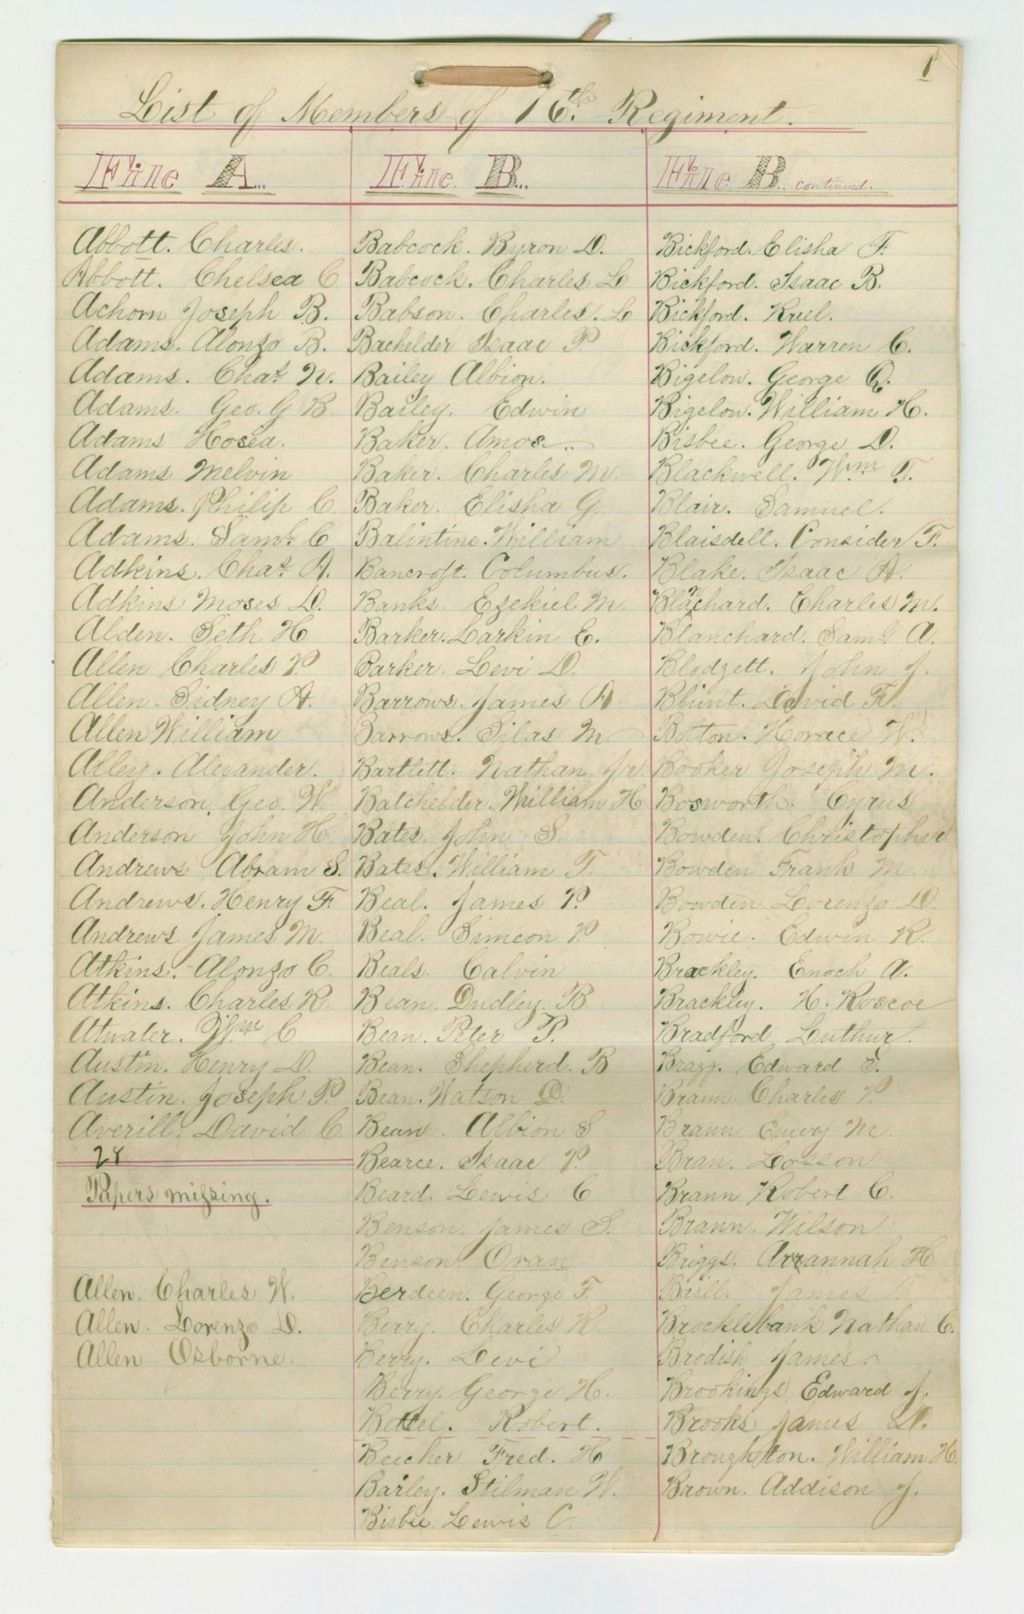 1
List of Members of 16th. Regiment.
File A.
Abbott. Charles.
Abbott. Chelsea C
Achorn Joseph B.
Adams. Alonzo B.
Adams. Chas. N.
Adams. Geo. G B
Adams Hosea.
Adams Melvin
Adams. Philip C.
Adams. Saml. C
Adkins. Chas. A.
Adkins Moses D.
Alden. Seth H
Allen Charles P.
Allen. Sidney A.
Allen William
Alley. Alexander.
Anderson, Geo. W
Anderson John H
Andrews Abram S.
Andrews. Henry F.
Andrews James M.
Atkins. Alonzo C.
Atkins. Charles R.
Atwater. Wm C
Austin. Henry D.
Austin. Joseph P.
Averill. David C.
28
Papers missing.
Allen. Charles W.
Allen. Lorenzo D.
Allen Osborne.
File B.
Babcock. Byron D.
Babcock. Charles L
Babson. Charles. L
Bachelder Isaac P
Bailey Albion.
Bailey. Edwin
Baker. Amos
Baker. Charles M.
Baker. Elisha G.
Balintine. William
Bancroft. Columbus.
Banks. Ezekiel M.
Barker. Larkin E.
Barker. Levi D.
Barrows. James A
Barrows. Silas M
Bartlett. Nathan Jr
Batchelder. William H
Bates. John S
Bates. William T.
Beal. James P.
Beal. Simeon P.
Beals. Calvin
Bean. Dudley. B
Bean. Peter P.
Bean. Shepherd. B
Bean. Watson D.
Bean. Albion S
Bearce. Isaac P.
Beard. Lewis C
Benson. James S.
Benson Oran
Berdeen. George F.
Berry. Charles R
Berry. Levi
Berry. George H.
Bettel. Robert.
Beecher Fred. H
Barley. Stilman W.
Bisbee Lewis C.
File B. continued.
Bickford. Elisha F.
Bickford. Isaac B.
Bickford. Ruel.
Bickford. Warren C.
Bigelow. George Q.
Bigelow. William H.
Bisbee. George D.
Blackwell. Wm T.
Blair. Samuel.
Blaisdell. Consider F.
Blake. Isaac A.
Blanchard. Charles M.
Blanchard. Saml. A.
Blodgett. John J.
Blunt. David F.
Bolton. Horace W.
Booker Joseph M.
Bosworth. Cyrus
Bowden. Christopher
Bowden Frank M
Bowden Lorenzo D.
Bowie. Edwin R.
Brackley. Enoch A.
Brackley. H. Roscoe
Bradford Luthur.
Bragg. Edward S.
Braun Charles P.
Braun Emery M.
Bran. Losson
Brann Robert C.
Braun. Wilson
Briggs. Arrannah H
Brill. James
Brocklebank Nathan C.
Brodish James.
Brookings Edward J.
Brooks James D.
Broughton. William H.
Brown. Addison J.